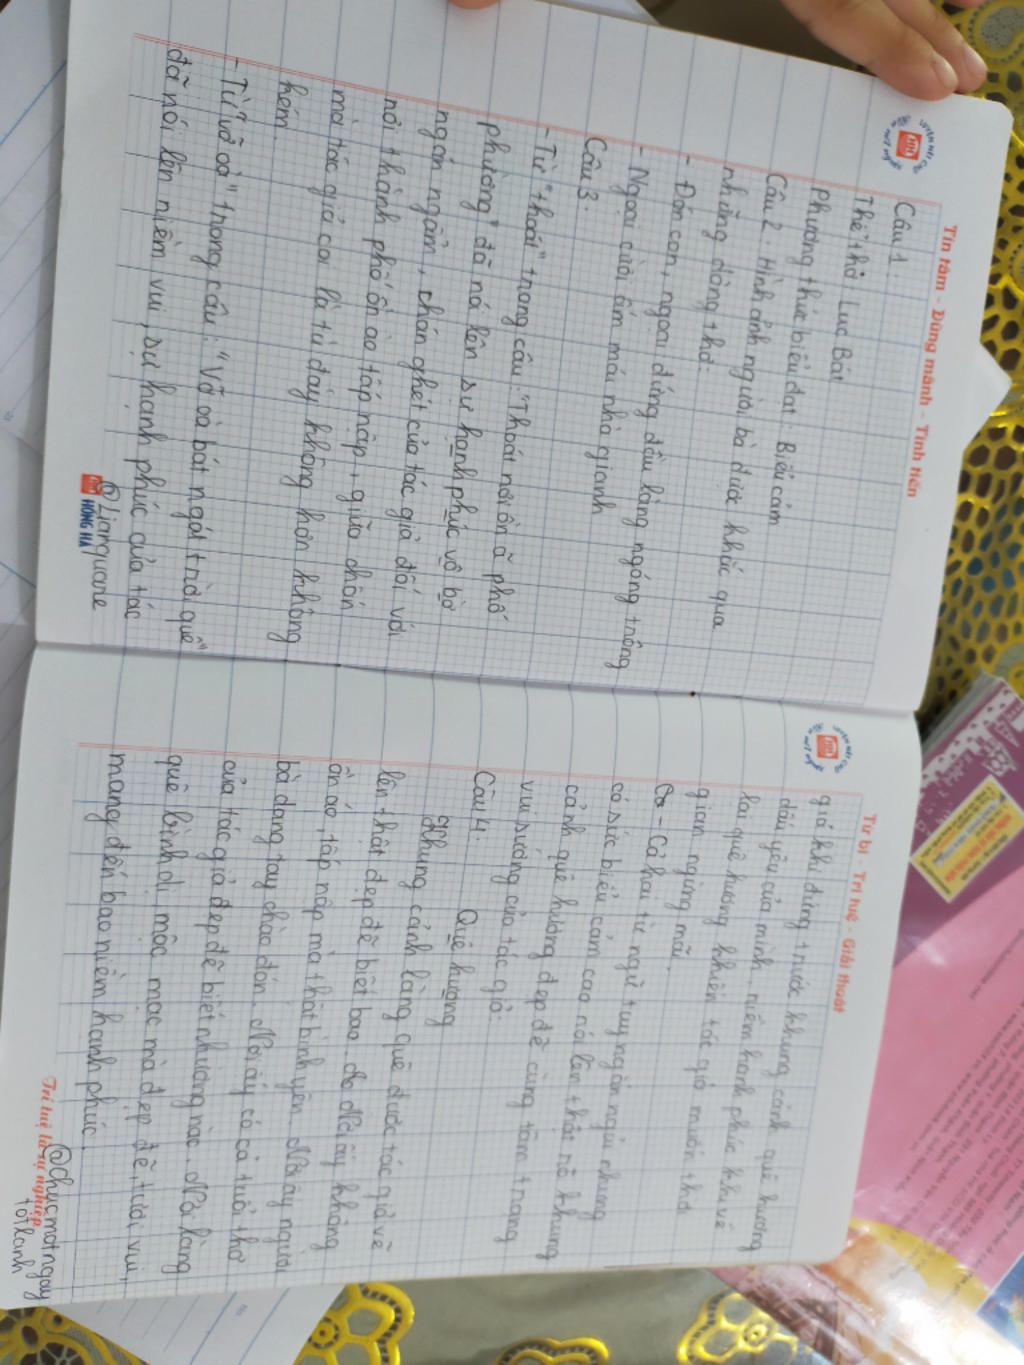 Tín tâm - Dũng mãnh - Tinh tiến
Câu 1.
Thể thơ: Lục Bát
Phương thức biểu đạt: Biểu cảm
Câu 2. Hình ảnh người bà được khắc qua
những dòng thơ:
- Đón con, ngoại đứng đầu làng ngóng trông
- Ngoại cười ấm mái nhà gianh
Câu 3.
- Từ "thoát" trong câu: "Thoát nơi ồn ã phố
phường" đã nói lên sự hạnh phúc vô bờ
ngán ngẩm, chán ghét của tác giả đối với
nơi thành phố ồn ào tấp nập, giữa chốn
mà tác giả coi là tù đày không hơn không
kém.
- Từ "vỡ oà" trong câu: "Vỡ oà bát ngát trời quê"
đã nói lên niềm vui, sự hạnh phúc của tác
HỒNG HÀ
@Lizinquare
Từ bi - Trí tuệ - Giải thoát
giả khi đứng trước khung cảnh quê hương
dấu yêu của mình, niềm hạnh phúc khi về
lại quê hương khiến tác giả muốn thời
gian ngừng mãi.
- Cả hai từ ngữ tuy ngắn ngủi nhưng
có sức biểu cảm cao nói lên thật rõ khung
cảnh quê hương đẹp đẽ cùng tâm trạng
vui sướng của tác giả.
Câu 4. Quê hương
Khung cảnh làng quê được tác giả vẽ
lên thật đẹp đẽ biết bao. Nơi ấy không
ồn ào, tấp nập mà thật bình yên. Nơi ấy người
bà dang tay chào đón. Nơi ấy có cả tuổi thơ
của tác giả đẹp đẽ biết nhường nào. Nơi làng
quê bình dị, mộc mạc mà đẹp đẽ, tươi vui,
mang đến bao niềm hạnh phúc.
Trí tuệ là sự nghiệp
@chucmotngay
totlanh